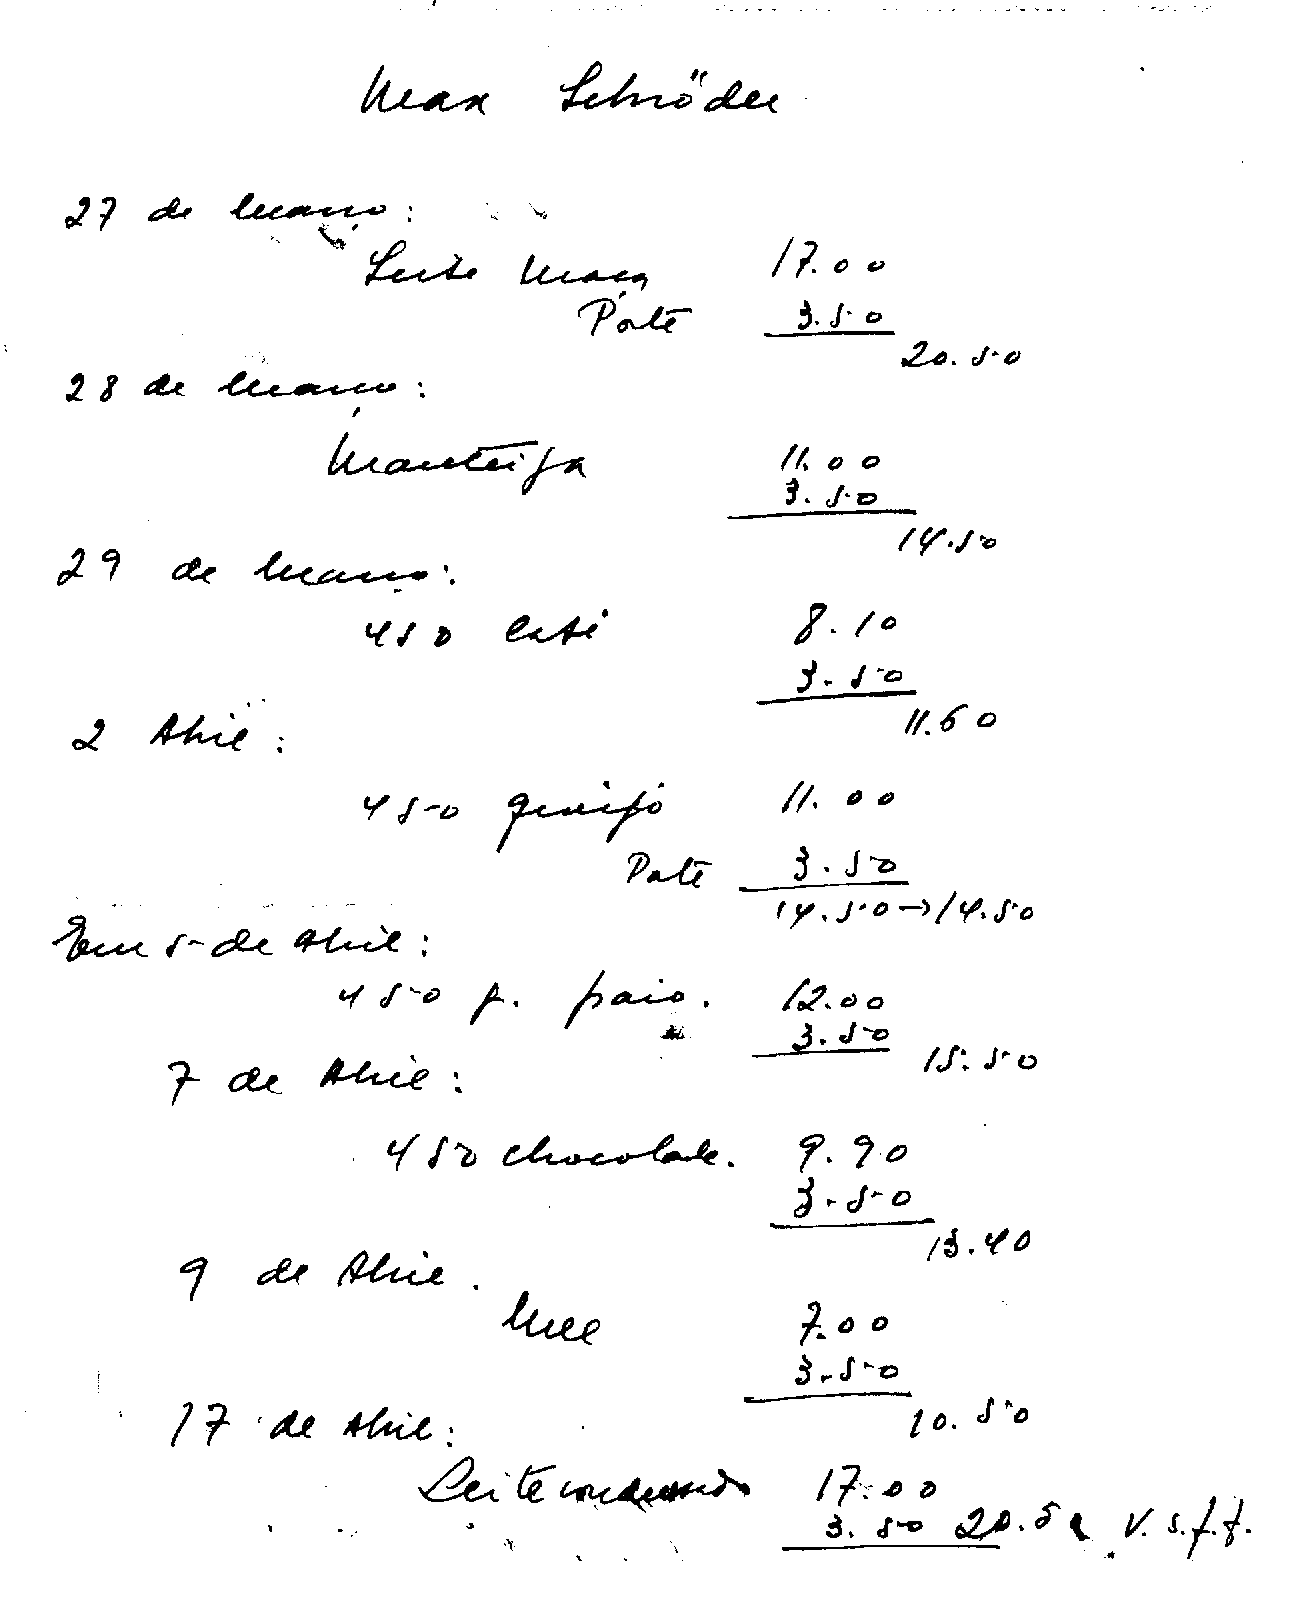 Max Schröder
27 de Março:
Leite Moça 17.00
Porte 3.50
20.50
28 de Março:
Manteiga 11.00
3.50
14.50
29 de Março:
450 Café 8.10
3.50
11.60
2 Abril:
450 queijo 11.00
Porte 3.50
14.50→14.50
Em 5 de Abril:
450 p. paio. 12.00
3.50
15.50
7 de Abril:
450 chocolate. 9.90
3.50
13.40
9 de Abril.
Mel 7.00
3.50
10.50
17 de Abril:
Leite condensado 17.00
3.50 20.50 V.s.f.f.